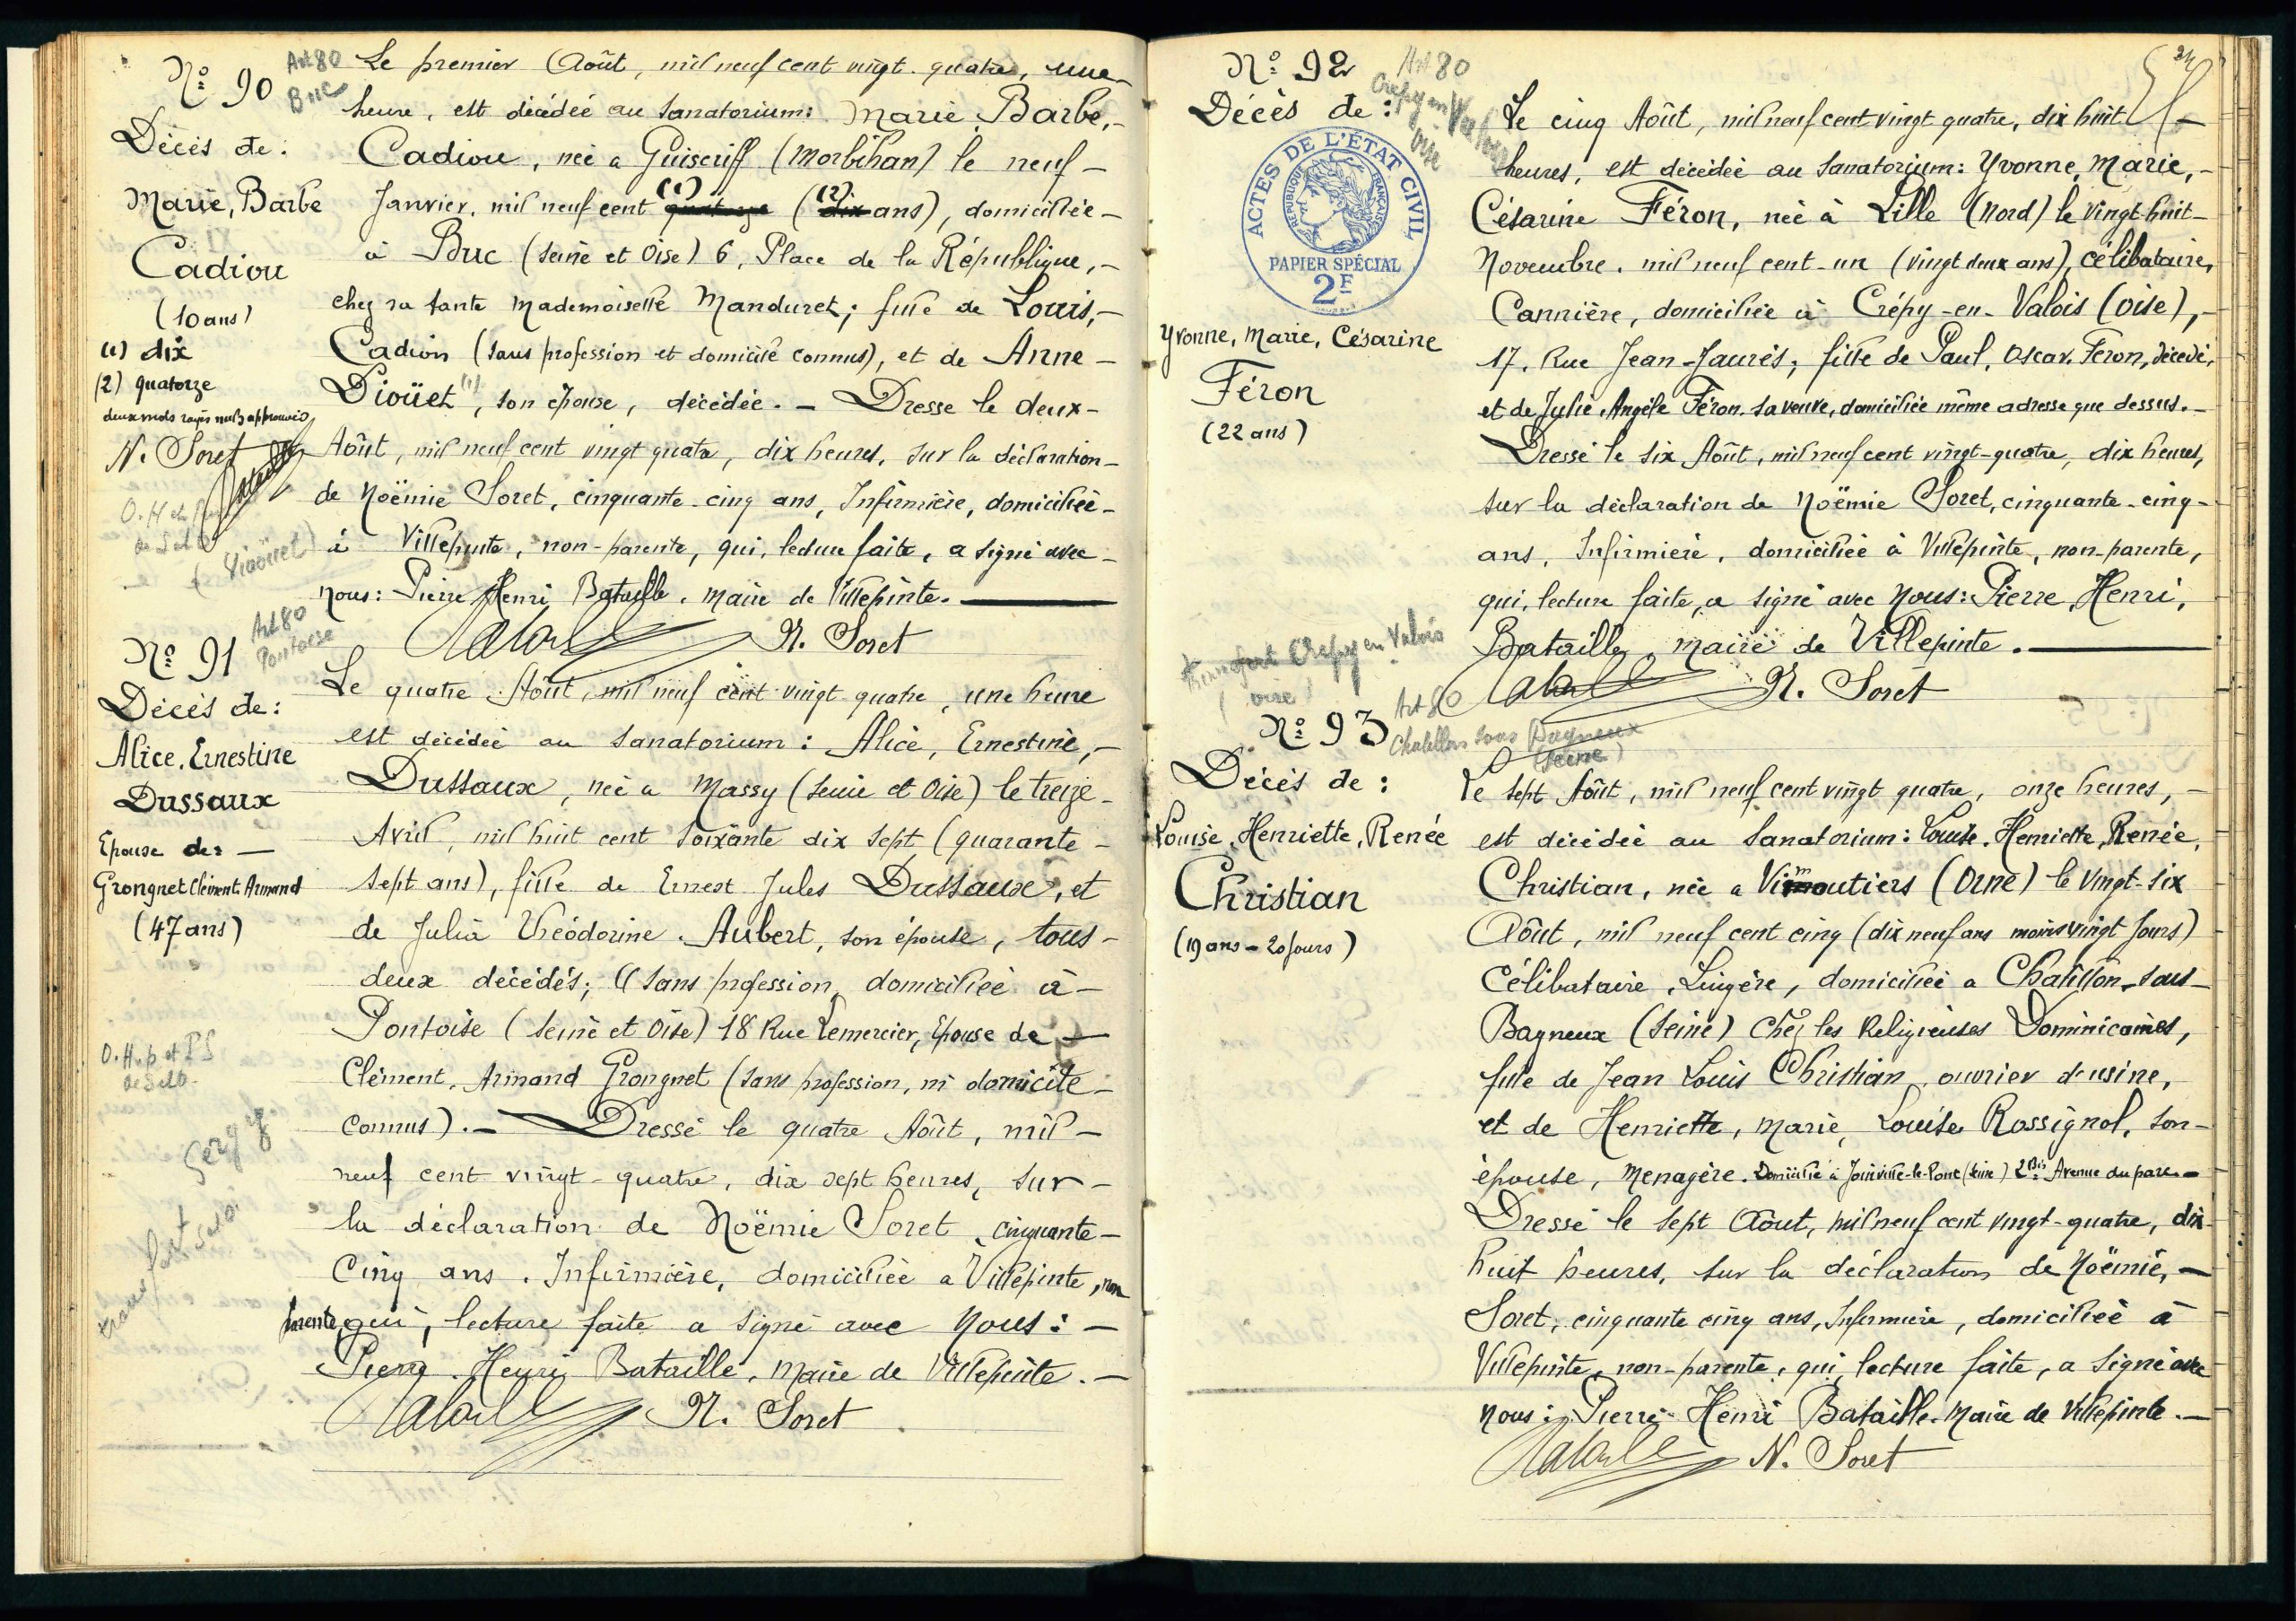 N° 90
Art 80
Buc
Décès de :
Marie, Barbe
Cadiou
(10 ans)
(1) dix
(2) quatorze
deux mots rayés nuls approuvés
N. Soret
Le premier Août, mil neuf cent vingt quatre, une
heure, est décédée au Sanatorium : Marie, Barbe,
Cadiou, née à Guiscriff (Morbihan) le neuf
Janvier, mil neuf cent (1) quatorze ((2) dix ans), domiciliée
à Buc (Seine et Oise) 6, Place de la République,
chez sa tante Mademoiselle Manduret ; fille de Louis,
Cadiou (sans profession et domicile connus), et de Anne
Diouët, son épouse, décédée. — Dressé le deux
Août, mil neuf cent vingt quatre, dix heures, sur la déclaration
de Noëmie Soret, cinquante-cinq ans, Infirmière, domiciliée
à Villepinte, non-parente, qui, lecture faite, a signé avec
nous : Pierre Henri Bataille, Maire de Villepinte.
Bataille N. Soret
N° 91
Art 80
Pontoise
Décès de :
Alice, Ernestine
Dussaux
Epouse de :
Grongnet Clément Armand
(47 ans)
Le quatre Août, mil neuf cent vingt quatre, une heure
est décédée au Sanatorium : Alice, Ernestine,
Dussaux, née à Massy (Seine et Oise) le treize
Avril, mil huit cent soixante dix sept (quarante
sept ans), fille de Ernest Jules Dussaux, et
de Julia Théodorine Aubert, son épouse, tous
deux décédés ; (sans profession, domiciliée à
Pontoise (Seine et Oise) 18 Rue Lemercier, Epouse de
Clément, Armand Grongnet (sans profession, ni domicile
connus). — Dressé le quatre Août, mil
neuf cent vingt-quatre, dix sept heures, sur
la déclaration de Noëmie Soret, cinquante
cinq ans, Infirmière, domiciliée à Villepinte, non
parente, qui, lecture faite a signé avec nous :
Pierre Henri Bataille, Maire de Villepinte.
Bataille N. Soret
N° 92
Art 80
Crépy en Valois
Oise
Décès de :
ACTES DE L'ÉTAT CIVIL
RÉPUBLIQUE FRANÇAISE
PAPIER SPÉCIAL
2F
Yvonne, Marie, Césarine
Féron
(22 ans)
transfert Crépy en Valois
(Oise)
Le cinq Août, mil neuf cent vingt quatre, dix huit
heures, est décédée au Sanatorium : Yvonne, Marie,
Césarine Féron, née à Lille (Nord) le vingt-huit
Novembre, mil neuf cent-un (vingt deux ans), célibataire,
Cannière, domiciliée à Crépy-en-Valois (Oise),
17, Rue Jean-Jaurès ; fille de Paul, Oscar, Féron, décédé,
et de Julie, Angèle Féron, sa veuve, domiciliée même adresse que dessus.
Dressé le six Août, mil neuf cent vingt-quatre, dix heures,
sur la déclaration de Noëmie Soret, cinquante-cinq
ans, Infirmière, domiciliée à Villepinte, non-parente,
qui, lecture faite, a signé avec Nous : Pierre, Henri,
Bataille, Maire de Villepinte.
Bataille N. Soret
N° 93
Art 80
Chatillon sous Bagneux
(Seine)
Décès de :
Louise, Henriette, Renée
Christian
(19 ans - 20 jours)
Le sept Août, mil neuf cent vingt quatre, onze heures,
est décédée au Sanatorium : Louise, Henriette, Renée,
Christian, née à Vimoutiers (Orne) le vingt-six
Août, mil neuf cent cinq (dix neuf ans moins vingt jours)
Célibataire, Lingère, domiciliée à Chatillon-sous-
Bagneux (Seine) chez les Religieuses Dominicaines,
fille de Jean Louis Christian, ouvrier d'usine,
et de Henriette, Marie, Louise Rossignol, son
épouse, Menagère. Domicilié à Joinville-le-Pont (Seine) 2 Bis Avenue du parc.
Dressé le sept Août, mil neuf cent vingt-quatre, dix
huit heures, sur la déclaration de Noëmie,
Soret, cinquante cinq ans, Infirmière, domiciliée à
Villepinte, non-parente, qui, lecture faite, a signé avec
nous : Pierre Henri Bataille, Maire de Villepinte.
Bataille N. Soret